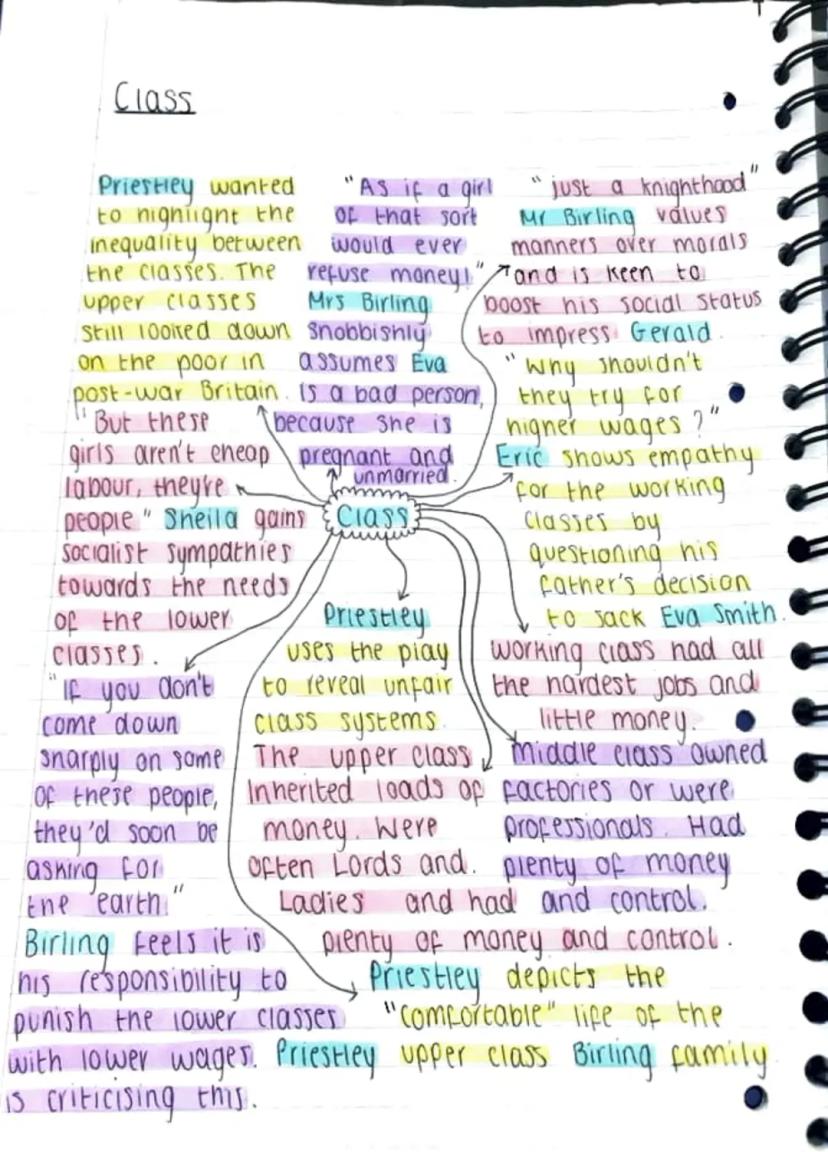 Class
Priestley wanted
to highlight the
inequality between
the classes. The
upper classes
still looked down
on the poor in
post-war Britain.
"As if a girl
of that sort
would ever
refuse money!"
Mrs Birling
snobbishly
assumes Eva
is a bad person,
because she is
pregnant and
unmarried.
"just a knighthood"
Mr Birling values
manners over morals
and is keen to
boost his social status
to impress Gerald.
"Why shouldn't
they try for
higher wages?"
Eric shows empathy
for the working
classes by
questioning his
father's decision
to sack Eva Smith.
"But these
girls aren't cheap
labour, they're
people" Sheila gains
socialist sympathies
towards the needs
of the lower
classes.
Class
"If you don't
come down
sharply on some
of these people,
they'd soon be
asking for
the earth."
Birling feels it is
his responsibility to
punish the lower classes
with lower wages. Priestley
is criticising this.
Priestley
uses the play
to reveal unfair
class systems.
The upper class
inherited loads of
money. Were
often Lords and
Ladies and had
plenty of money and control.
working class had all
the hardest jobs and
little money.
Middle class owned
factories or were
professionals. Had
plenty of money
and control.
Priestley depicts the
"comfortable" life of the
upper class Birling family